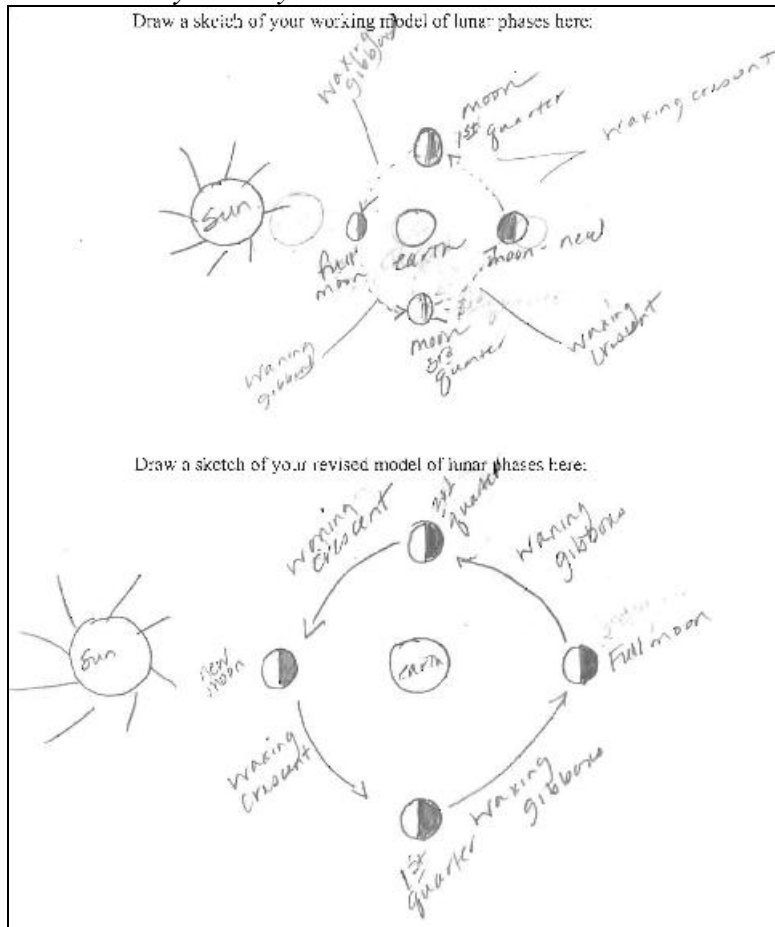 Draw a sketch of your working model of lunar phases here:
waxing
gibbous
moon
1st
quarter
waxing cresunt
Sun
full
moon
earth
moon - new
moon
3rd
quarter
waning
gibbous
waxing
crescent
Draw a sketch of your revised model of lunar phases here:
waning
crescent
3rd
quarter
waning
gibbous
Sun
new
moon
earth
Full moon
waxing
crescent
1st
quarter
waxing
gibbous